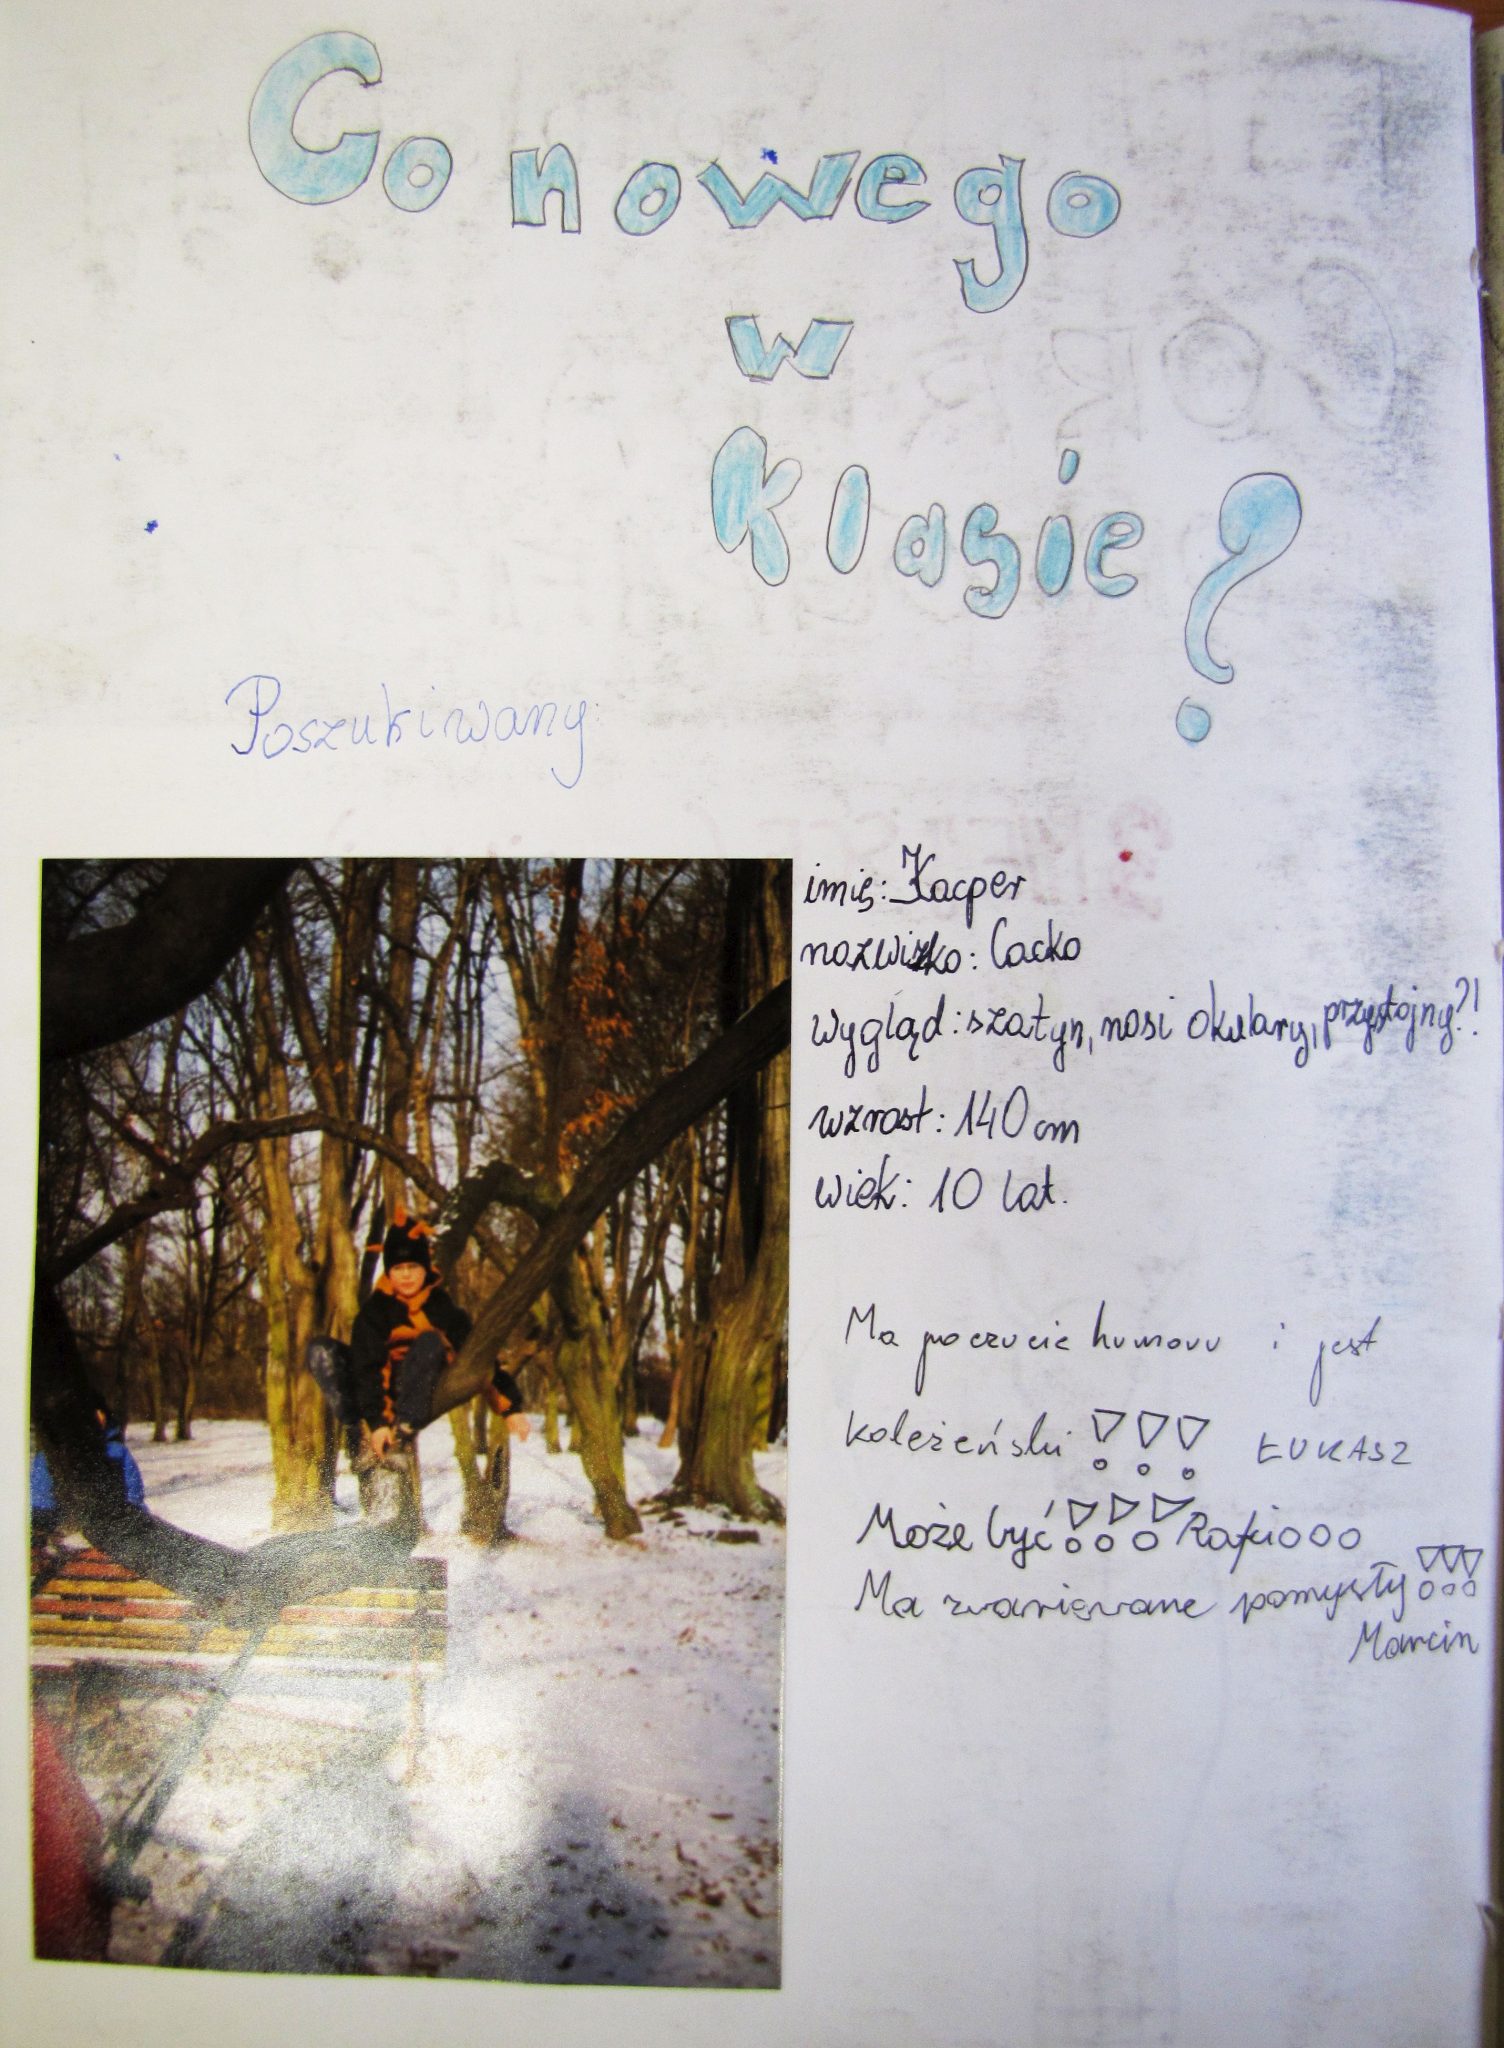 Co nowego
w
klasie?
Poszukiwany:
imię: Kacper
nazwisko: Cacko
wygląd: szatyn, nosi okulary, przystojny?!
wzrost: 140 cm
wiek: 10 lat.
Ma poczucie humoru i jest
koleżeński !!! ŁUKASZ
Może być !!! Rafiooo
Ma zwariowane pomysły !!!
Marcin